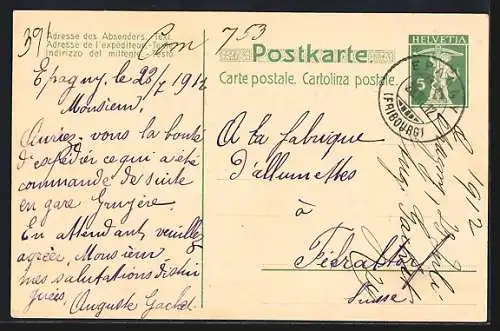 391 Com 753
Adresse des Absenders. - Text.
Adresse de l'expéditeur. - Texte.
Indirizzo del mittente. - Testo.
Postkarte
Carte postale. Cartolina postale.
HELVETIA
5
(FRIBOURG)
Epagny, le 23/7 1912
Monsieur,
Auriez-vous la bonté
d'expédier ce qui a été
commandé de suite
en gare Gruyère.
En attendant, veuillez
agréer, Monsieur
mes salutations distin
guées,
Auguste Gachet
A la fabrique
d'allumettes
à
Suisse
Epagny, 23 Juli
1912
Aug. Gachet